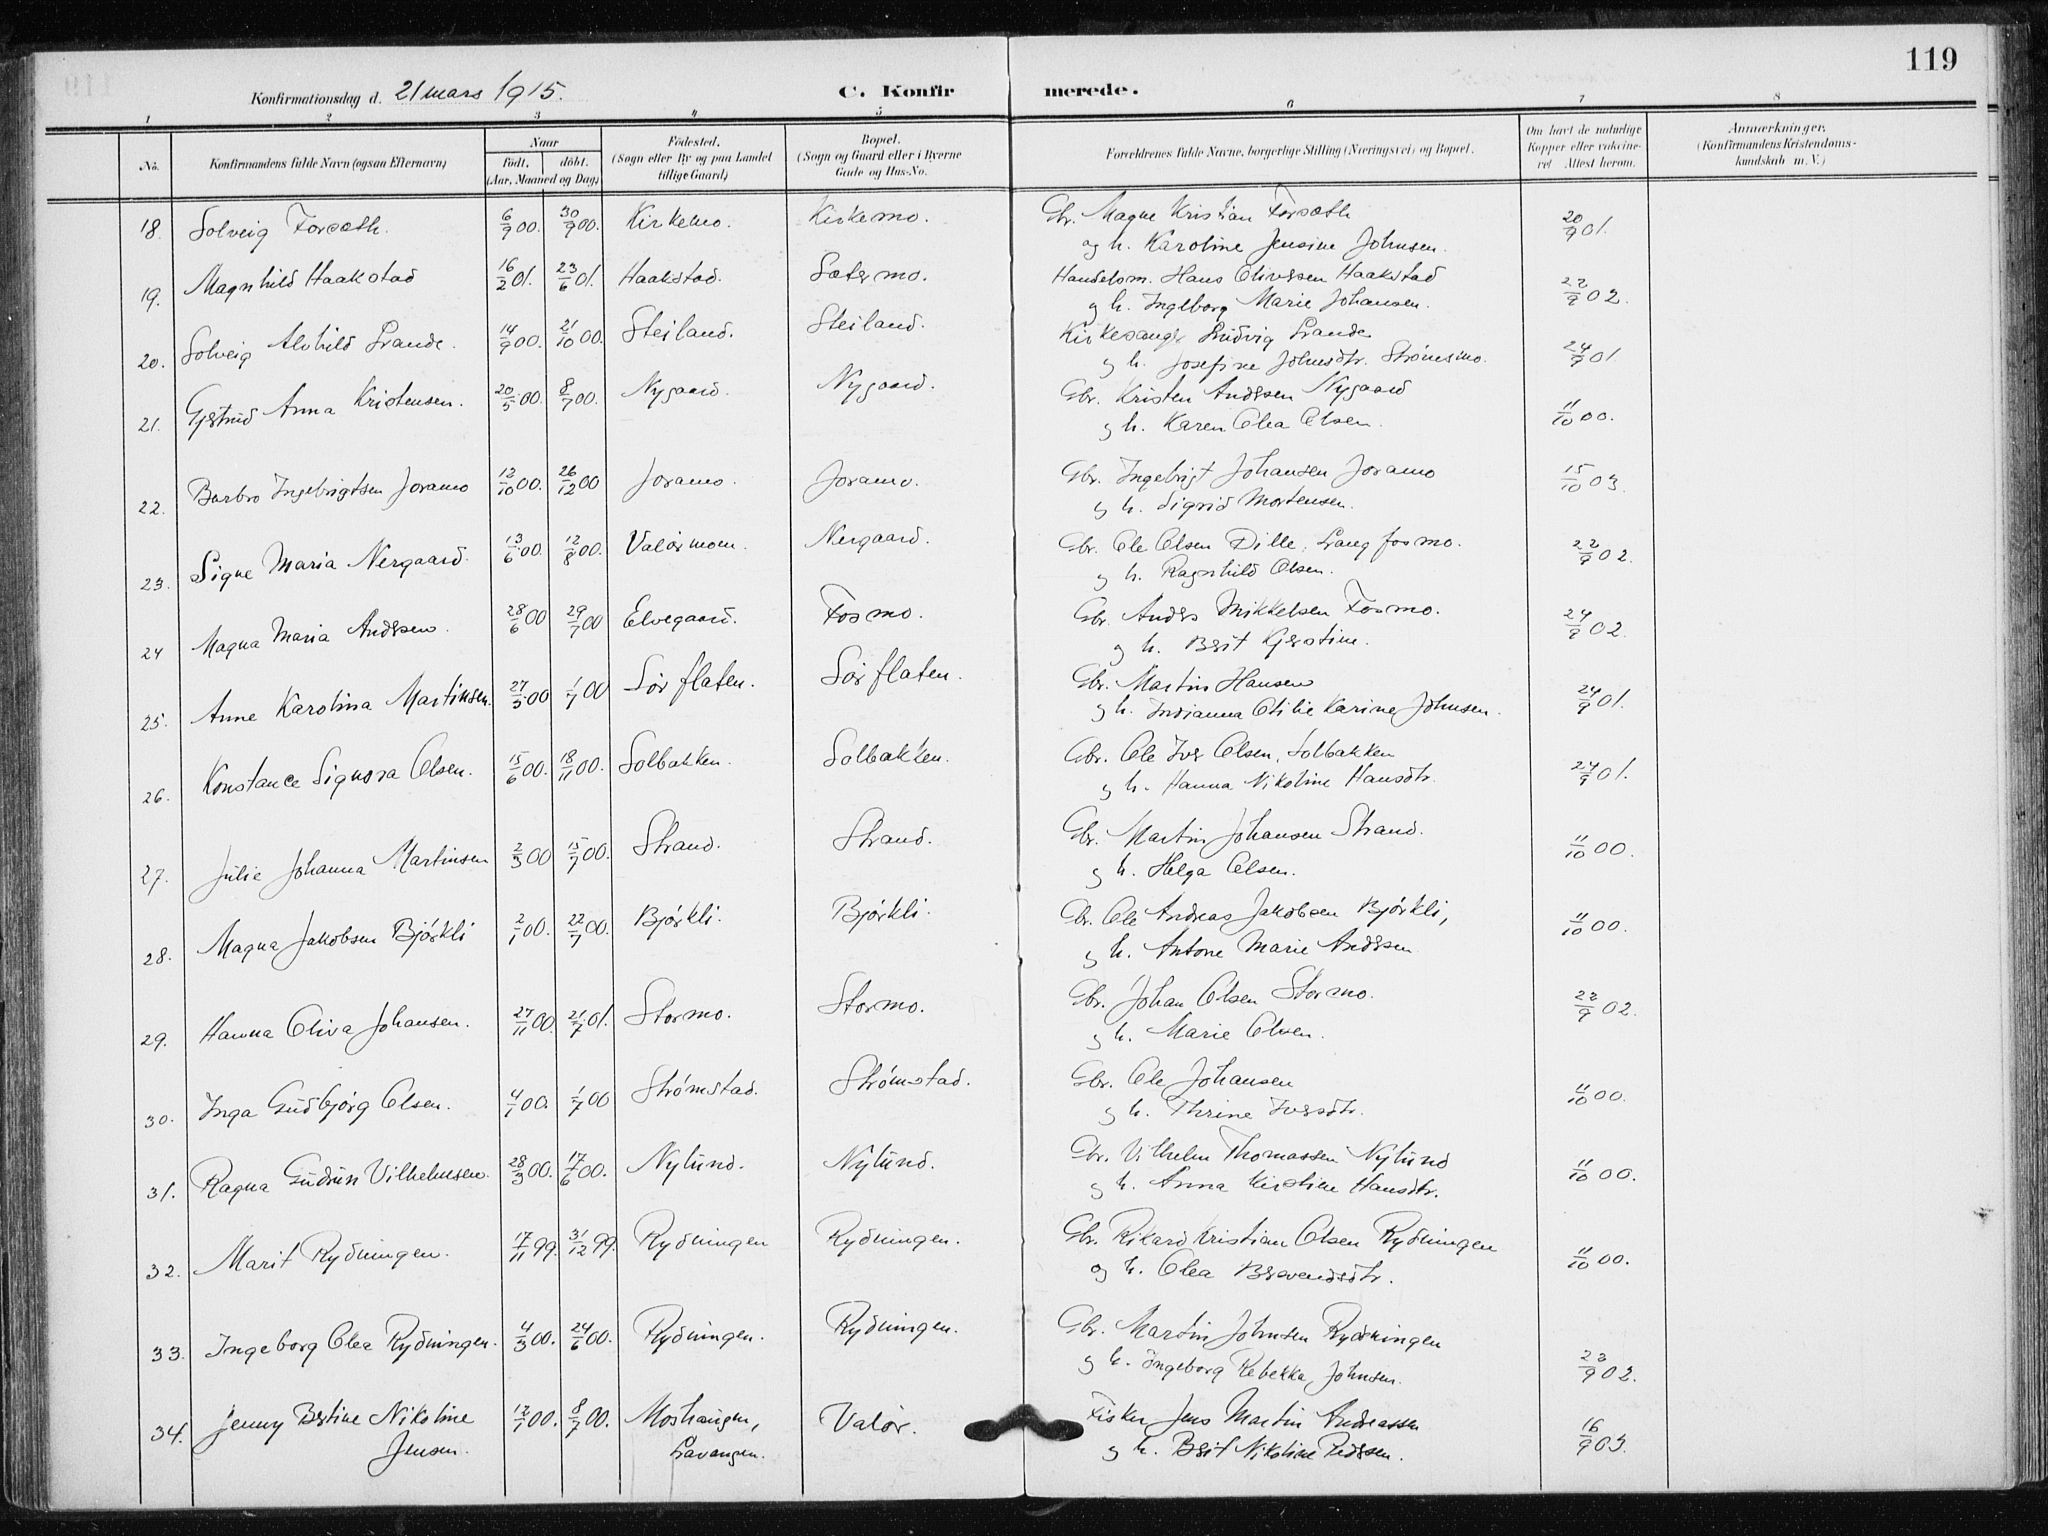 119
Konfirmationsdag d. 21 mars 1915. C. Konfirmerede.
1 2 3 4 5 6 7 8
No. Konfirmandens fulde Navn (ogsaa Efternavn) Naar født, døbt. (Aar, Maaned og Dag) Fødested. (Sogn eller By og paa Landet tillige Gaard) Bopæl. (Sogn og Gaard eller i Byerne Gade og Hus-No. Forældrenes fulde Navne, borgerlige Stilling (Næringsvei) og Bopæl. Om havt de naturlige Kopper eller vakcineret. Attest herom. Anmærkninger. (Konfirmandens Kristendomskundskab m. V.)
18. Solveig Forseth. 6/9 00. 30/9 00. Kirkemo. Kirkemo. Gbr. Magne Kristian Forseth 20/9 01.
og h. Karoline Jensine Johnsen.
19. Magnhild Haakstad 16/2 01. 23/6 01. Haakstad. Sætermo. Handelsm. Hans Oliversen Haakstad 22/9 02.
og h. Ingeborg Marie Johansen.
20. Solveig Alvhild Grande. 14/9 00. 21/10 00. Steiland. Steiland. Kirkesanger Ludvig Grande 24/9 01
og h. Josefine Johnsdtr. Strømsmo.
21. Gjertrud Anna Kristensen. 20/5 00. 8/7 00. Nygaard. Nygaard. Gbr. Kristen Andersen Nygaard 11/10 00.
og h. Karen Olea Olsen.
22. Barbro Ingebrigtsen Joramo 12/10 00. 26/12 00 Joramo. Joramo. Gbr. Ingebrigt Johansen Joramo 15/10 03.
og h. Sigrid Mortensen.
23. Signe Maria Nergaard. 13/6 00. 12/8 00. Valørmoen. Nergaard. Gbr. Ole Olsen Dille, Langfosmo. 22/9 02.
og h. Ragnhild Olsen.
24 Magna Maria Andersen. 28/6 00 29/7 00 Elvegaard. Fosmo. Gbr. Anders Mikkelsen Fosmo. 24/9 02.
og h. Berit Kjerstine.
25. Anne Karolina Martinsen. 27/3 00 1/7 00 Sørflaten. Sørflaten. Gbr. Martin Hansen 24/9 01.
og h. Indianna Otilie Karine Johnsen.
26. Konstance Signora Olsen. 15/6 00. 18/11 00. Solbakken. Solbakken. Gbr. Ole Iver Olsen, Solbakken 24/9 01.
og h. Hanna Nikoline Hansdtr.
27. Julie Johanna Martinsen 2/3 00 15/7 00. Strand. Strand. Gbr. Martin Johansen Strand. 11/10 00.
og h. Helga Olsen.
28. Magna Jakobsen Bjørkli 2/1 00. 22/7 00. Bjørkli. Bjørkli. Gbr. Ole Andreas Jakobsen Bjørkli, 11/10 00.
og h. Antone Marie Andersen
29. Hanna Oliva Johansen. 27/11 00. 21/7 01. Stormo. Stormo. Gbr. Johan Olsen Stormo. 22/9 02.
og h. Marie Olsen.
30. Inga Gudbjørg Olsen. 4/1 00. 1/7 00 Strømstad. Strømstad. Gbr. Ole Johansen 11/10 00.
og h. Thrine Iversdtr.
31. Ragna Gudrun Vilhelmsen. 28/3 00. 17/6 00. Nylund. Nylund. Gbr. Vilhelm Thomassen Nylund 11/10 00.
og h. Anna Kirstine Hansdtr.
32. Marit Rydningen. 17/11 99. 31/12 99. Rydningen Rydningen. Gbr. Rikard Kristian Olsen Rydningen 11/10 00.
og h. Olea Berevendsdtr.
33. Ingeborg Olea Rydningen. 4/3 00. 24/6 00. Rydningen. Rydningen. Gbr. Martin Johnsen Rydningen 22/9 02.
og h. Ingeborg Rebekka Johnsen.
34. Jenny Bertine Nikoline 12/1 00. 8/7 00. Moshaugen, Valør. Fisker Jens Martin Andreassen 16/9 03.
Jensen. Lavangen. og h. Berit Nikoline Pedersen.